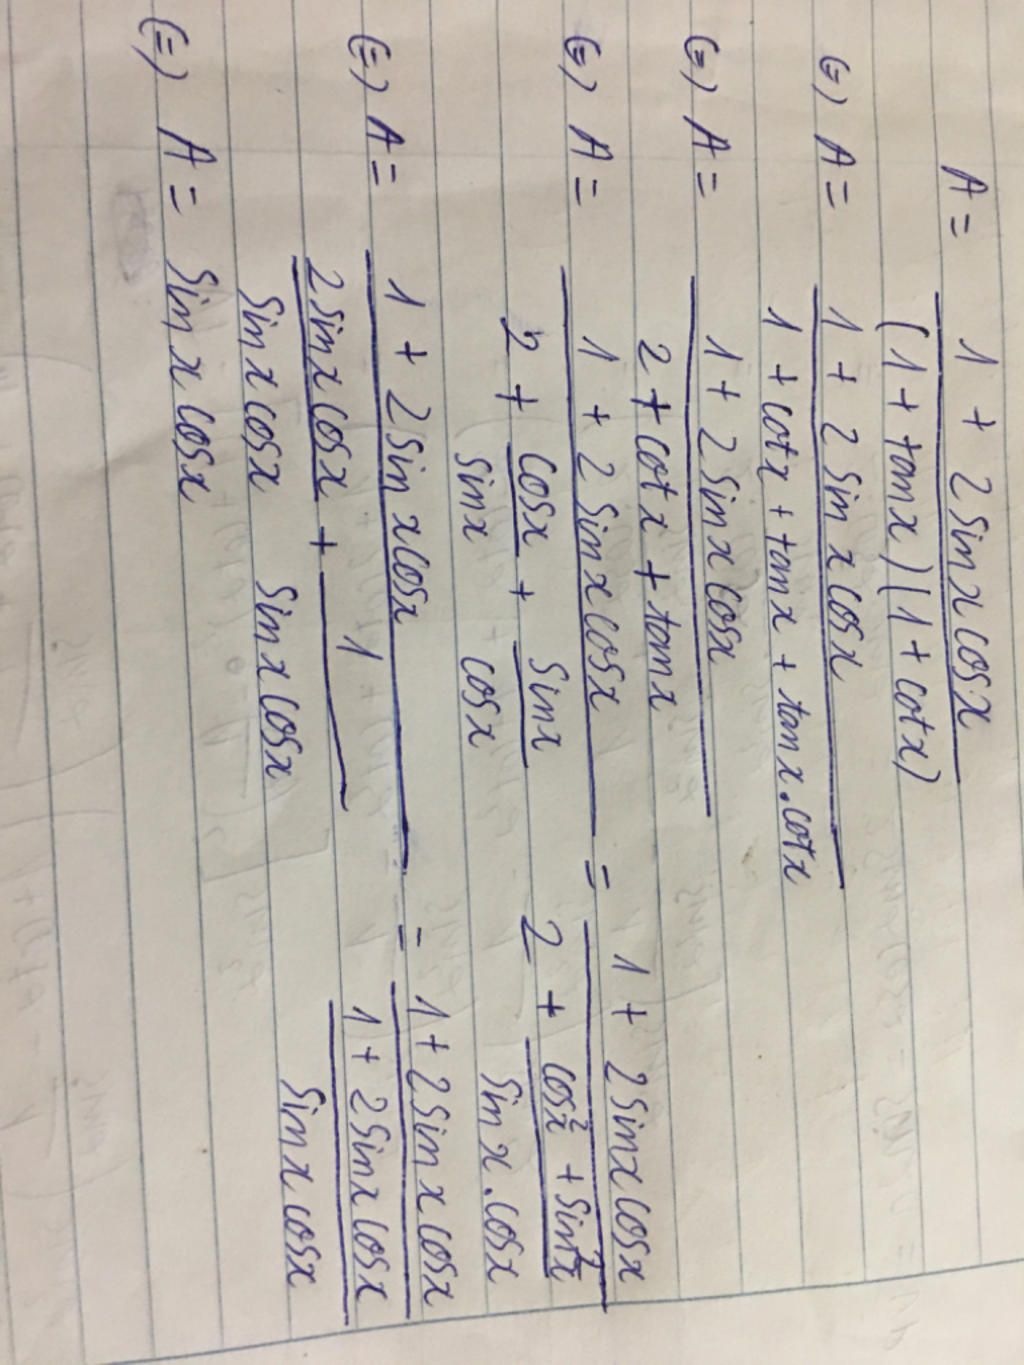 A = 1 + 2 sin x cos x / (1 + tan x)(1 + cot x)
(=) A = 1 + 2 sin x cos x / 1 + cot x + tan x + tan x . cot x
(=) A = 1 + 2 sin x cos x / 2 + cot x + tan x
(=) A = 1 + 2 sin x cos x / 2 + cos x / sin x + sin x / cos x = 1 + 2 sin x cos x / 2 + cos² x + sin² x / sin x . cos x
(=) A = 1 + 2 sin x cos x / 2 sin x cos x / sin x cos x + 1 / sin x cos x = 1 + 2 sin x cos x / 1 + 2 sin x cos x / sin x cos x
(=) A = sin x cos x